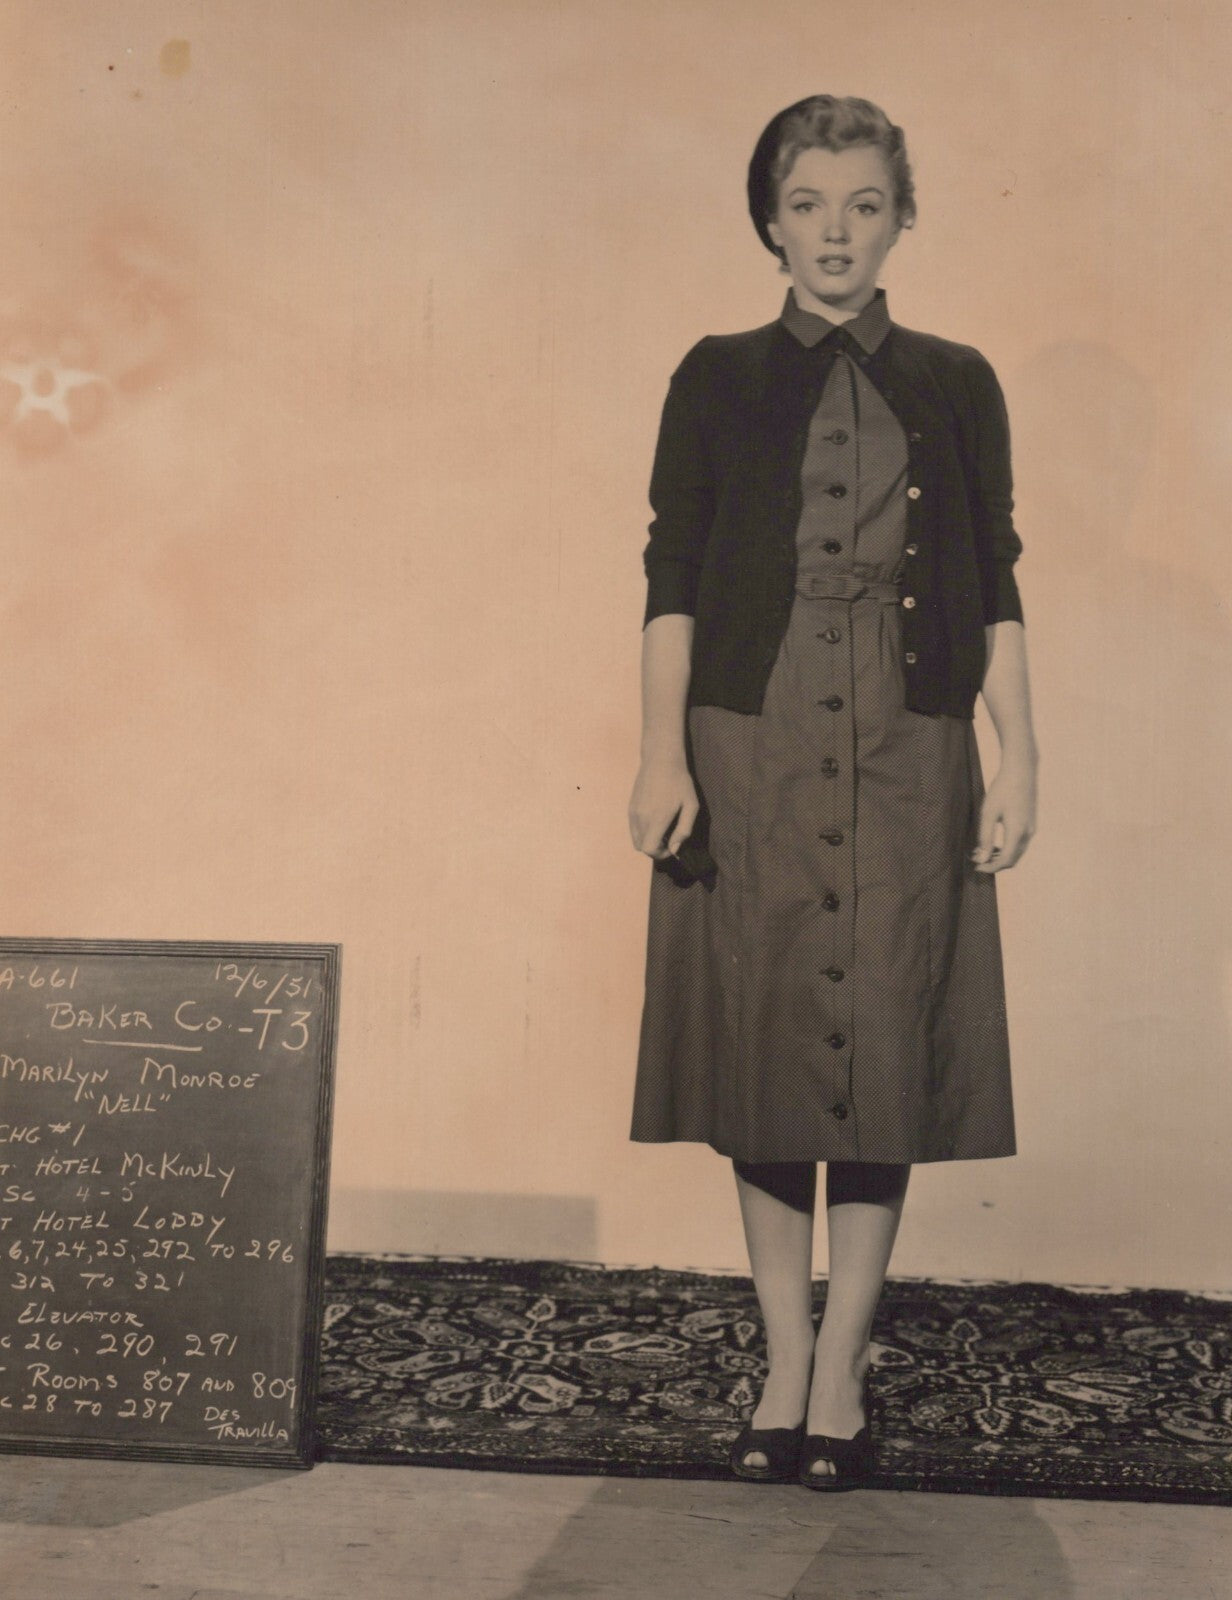 A-661 12/6/51
BAKER CO.-T3
MARILYN MONROE
"NELL"
CHG #1
T. HOTEL MCKINLY
SC 4-5
T HOTEL LOBBY
6,7,24,25,292 TO 296
312 TO 321
ELEVATOR
C 26, 290, 291
T ROOMS 807 AND 809
C 28 TO 287 DES
TRAVILLA